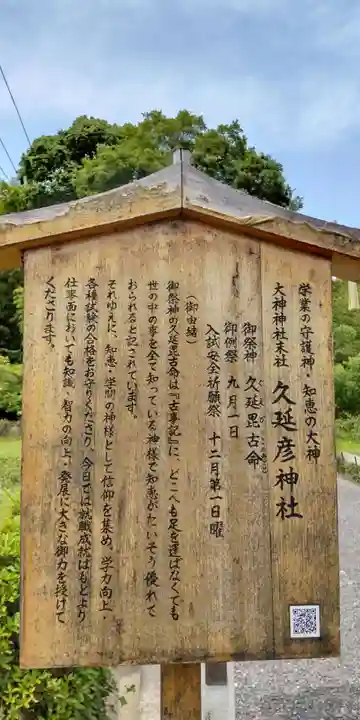 学業の守護神・知恵の大神
大神神社末社 久延彦神社
御祭神 久延毘古命
御例祭 九月一日
入試安全祈願祭 十二月第一日曜
(御由緒)
御祭神の久延毘古命は『古事記』に、どこへも足を運ばなくても
世の中の事を全て知っている神様で知恵がたいそう優れて
おられると記されています。
それゆえに、知恵・学問の神様として信仰を集め、学力向上・
各種試験の合格をお守りくださり、今日では就職成就はもとより
仕事面においても知識、智力の向上・発展に大きな御力を授けて
くださります。